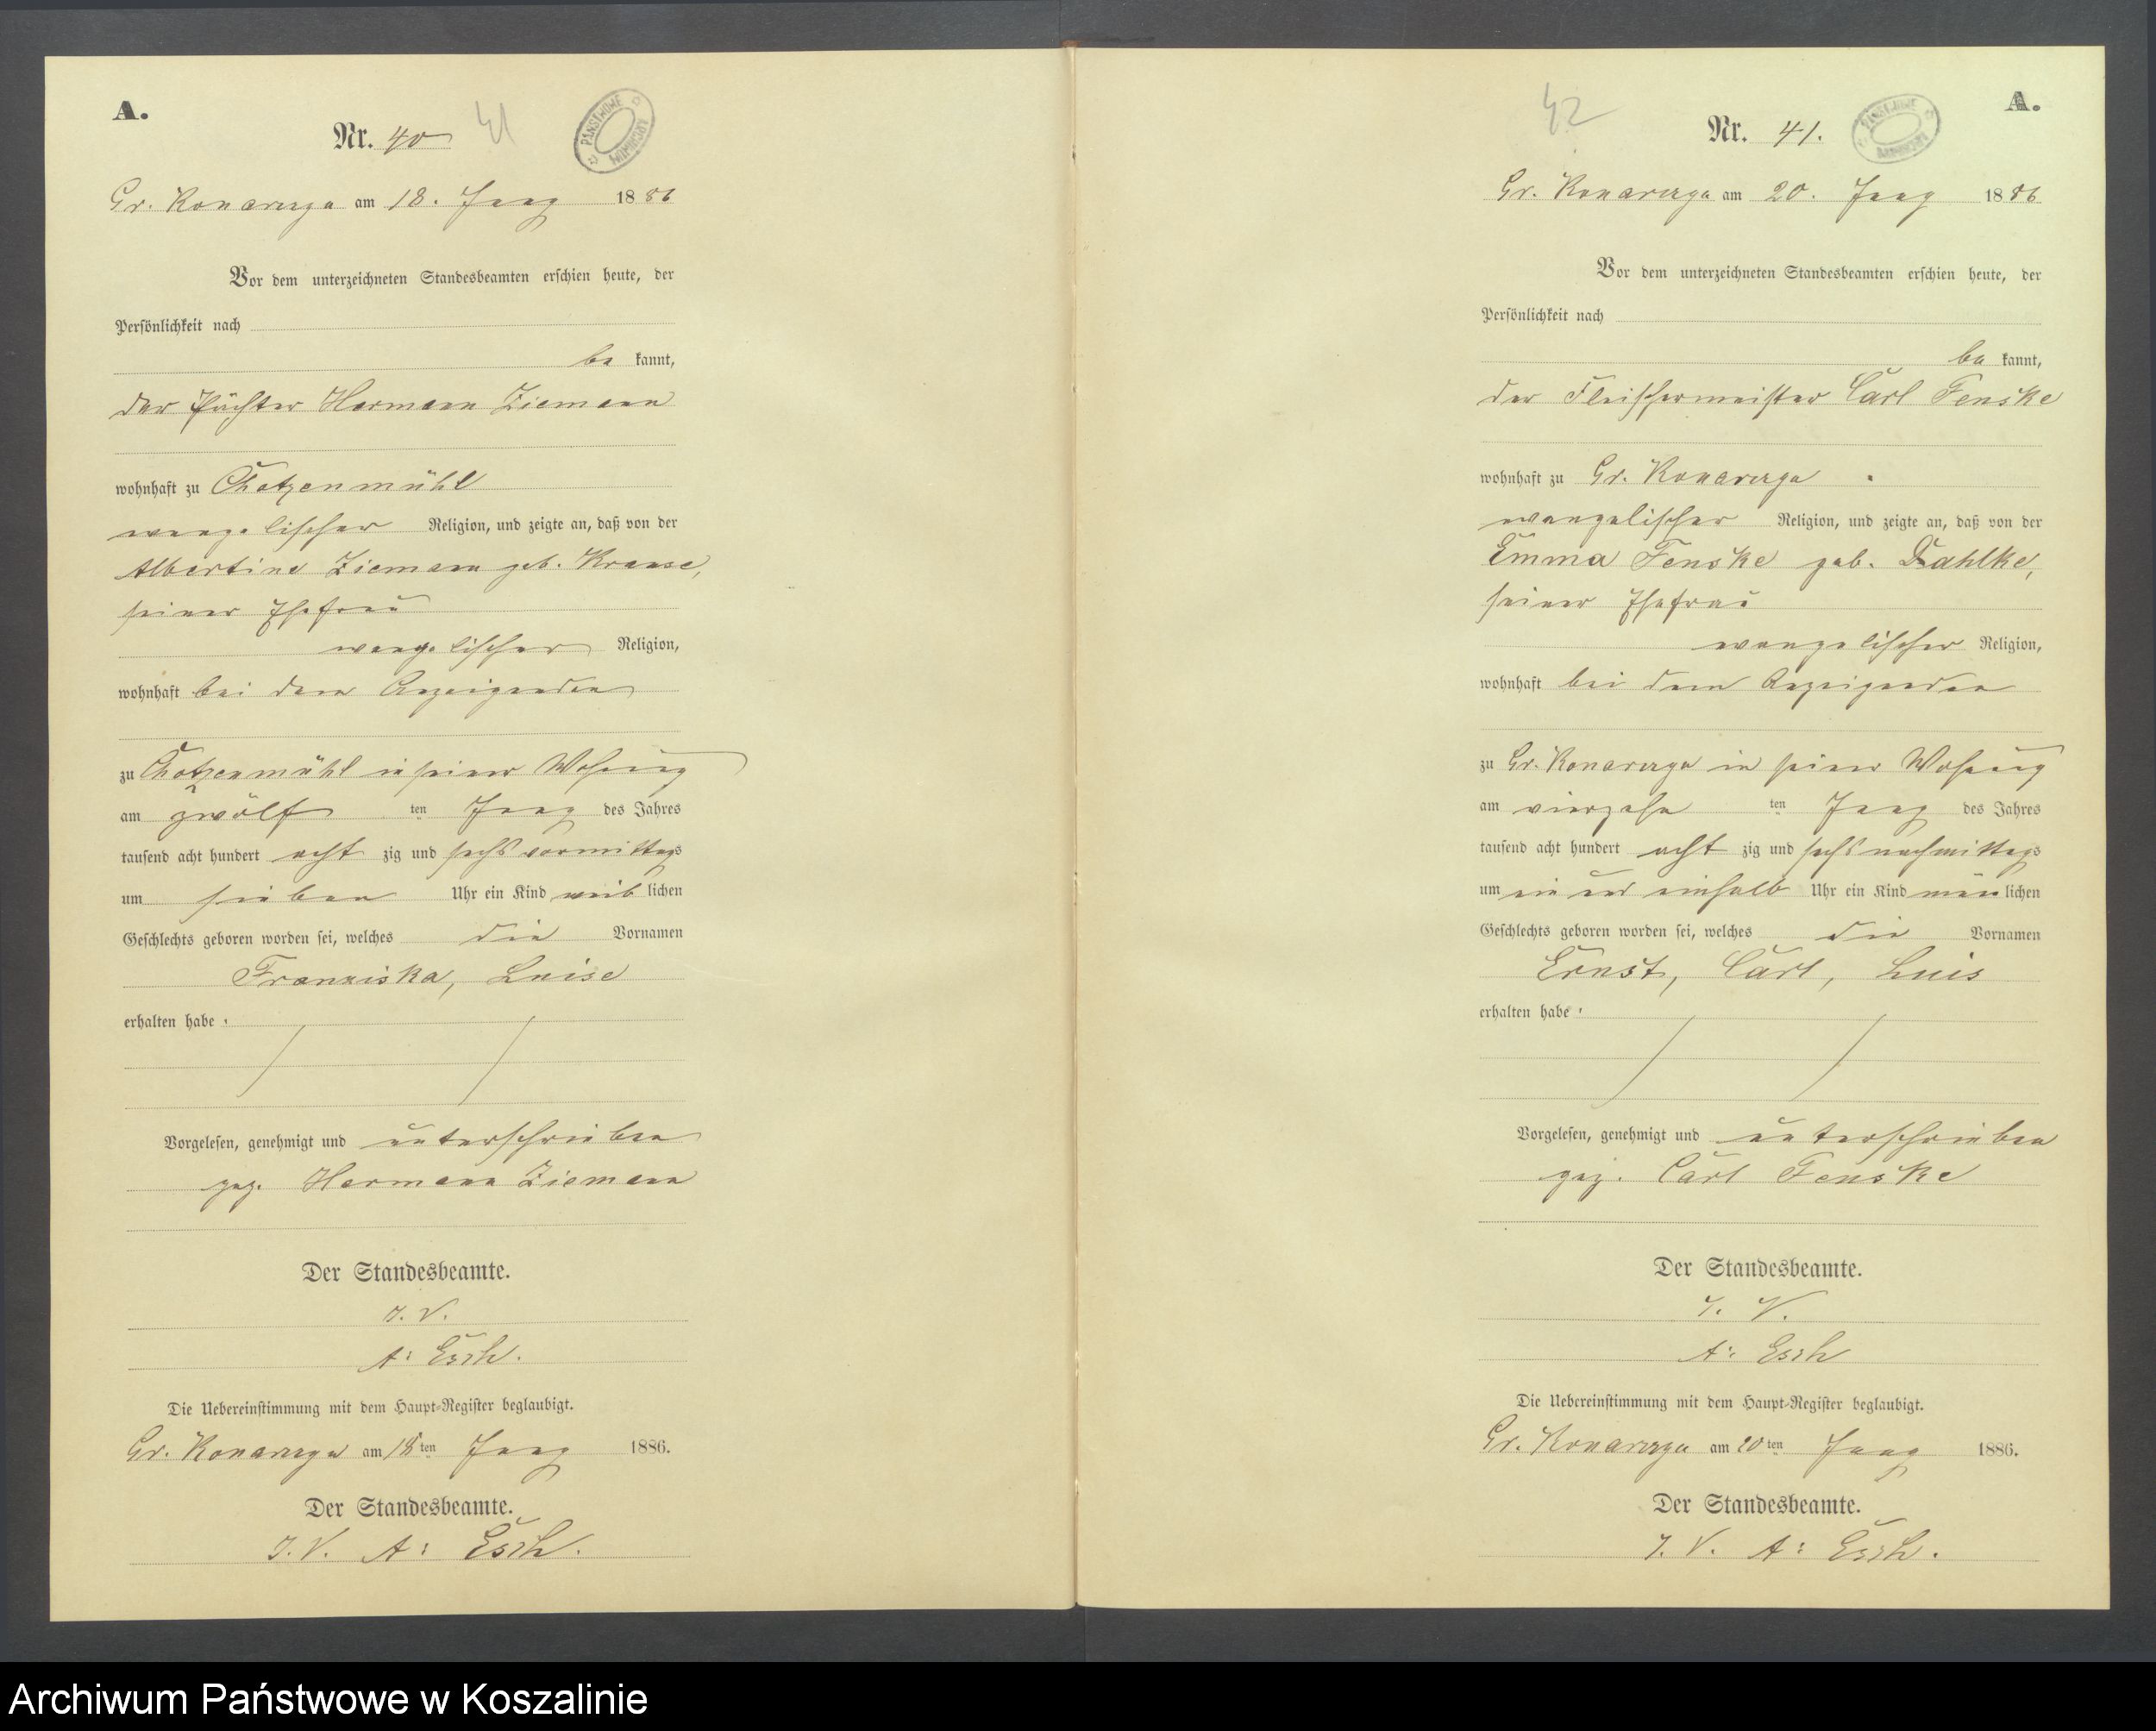 A.
Nr. 40
41
PAŃSTWOWE ARCHIWUM
Gr. Konarczyn am 18. Juny 1886
Vor dem unterzeichneten Standesbeamten erschien heute, der
Persönlichkeit nach
be kannt,
der Pächter Hermann Ziemann
wohnhaft zu Chotzenmühl
evangelischer Religion, und zeigte an, daß von der
Albertine Ziemann geb. Krause,
seiner Ehefrau
evangelischer Religion,
wohnhaft bei dem Anzeigenden
zu Chotzenmühl in seiner Wohnung
am zwölf ten Juny des Jahres
tausend acht hundert acht zig und sechs vormittags
um sieben Uhr ein Kind weib lichen
Geschlechts geboren worden sei, welches die Vornamen
Franziska, Luise
erhalten habe.
Vorgelesen, genehmigt und unterschrieben
gez. Hermann Ziemann
Der Standesbeamte.
J. V.
A: Esch.
Die Uebereinstimmung mit dem Haupt-Register beglaubigt.
Gr. Konarczyn am 18 ten Juny 1886.
Der Standesbeamte.
J. V. A: Esch.
42
A.
Nr. 41.
PAŃSTWOWE ARCHIWUM
Gr. Konarczyn am 20. Juny 1886
Vor dem unterzeichneten Standesbeamten erschien heute, der
Persönlichkeit nach
be kannt,
der Fleischermeister Carl Fenske
wohnhaft zu Gr. Konarczyn
evangelischer Religion, und zeigte an, daß von der
Emma Fenske geb. Dahlke,
seiner Ehefrau
evangelischer Religion,
wohnhaft bei dem Anzeigenden
zu Gr. Konarczyn in seiner Wohnung
am vierzehn ten Juny des Jahres
tausend acht hundert acht zig und sechs nachmittags
um ein und einhalb Uhr ein Kind män lichen
Geschlechts geboren worden sei, welches die Vornamen
Ernst, Carl, Luis
erhalten habe.
Vorgelesen, genehmigt und unterschrieben
gez. Carl Fenske
Der Standesbeamte.
J. V.
A: Esch
Die Uebereinstimmung mit dem Haupt-Register beglaubigt.
Gr. Konarczyn am 20 ten Juny 1886.
Der Standesbeamte.
J. V. A: Esch.
Archiwum Państwowe w Koszalinie